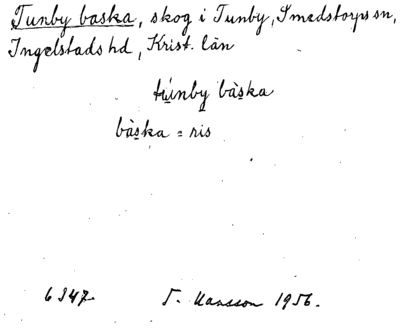 Tunby baska, skog i Tunby, Smedstorps sn,
Ingelstads hd, Krist. län
túnby bàska
bàska = ris
6347. Hansson 1956.